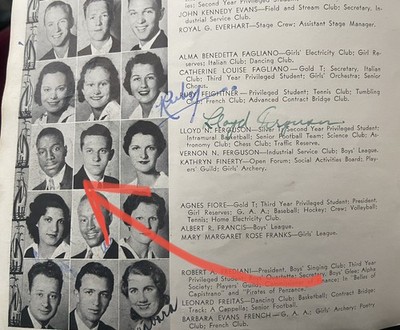 JOHN KENNEDY EVANS—Field and Stream Club; Secretary, In-
dustrial Service Club.
ROYAL G. EVERHART—Stage Crew; Assistant Stage Manager.
ALMA BENEDETTA FAGLIANO—Girls' Electricity Club; Girl Re-
serves; Italian Club; Dancing Club.
CATHERINE LOUISE FAGLIANO—Gold T; Secretary, Italian
Club; Third Year Privileged Student; Girls' Orchestra; Senior
Chorus.
FEIGHTNER—Privileged Student; Tennis Club; Tumbling
Club; French Club; Advanced Contract Bridge Club.
Lloyd Ferguson
LLOYD N. FERGUSON—Silver T; Second Year Privileged Student;
Intramural Basketball; Senior Football Team; Science Club; As-
tronomy Club; Chess Club; Traffic Reserve.
VERNON N. FERGUSON—Industrial Service Club; Boys' League.
KATHRYN FINERTY—Open Forum; Social Activities Board; Play-
ers' Guild; Girls' Archery.
AGNES FIORE—Gold T; Third Year Privileged Student; President,
Girl Reserves; G. A. A.; Baseball; Hockey; Crew; Volleyball;
Tennis; Home Electricity Club.
ALBERT R. FRANCIS—Boys' League.
MARY MARGARET ROSE FRANKS—Girls' League.
ROBERT A. President, Boys' Singing Club; Third Year
Privileged Student; Quartette; Secretary, Boys' Glee; Alpha
In "Belles of
Capistrano" and "Pirates of Penzance."
LEONARD FREITAS—Dancing Club; Basketball; Contract Bridge;
Track; A Cappella; Senior Football.
BARBARA EVANS FRENCH—G. A. A.; Girls' Archery; Poetry